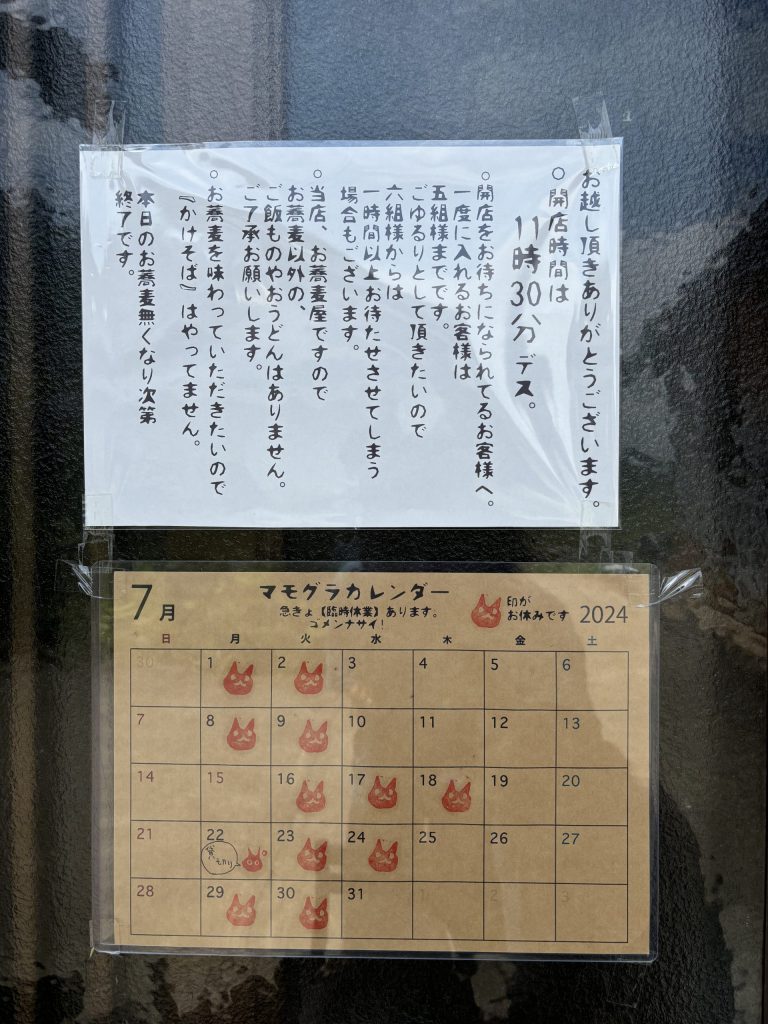 お越し頂きありがとうございます。
○開店時間は
11時30分デス。
○開店をお待ちになられてるお客様へ。
一度に入れるお客様は
五組様までです。
ごゆるりとして頂きたいので
六組様からは
一時間以上お待たせさせてしまう
場合もございます。
○当店、お蕎麦屋ですので
お蕎麦以外の、
ご飯ものやおうどんはありません。
ご了承お願いします。
○お蕎麦を味わっていただきたいので
『かけそば』はやってません。
本日のお蕎麦無くなり次第
終了です。
7月 マモグラカレンダー
急きょ【臨時休業】あります。
ゴメンナサイ!
印が
お休みです
2024
日 月 火 水 木 金 土
30 1 2 3 4 5 6
7 8 9 10 11 12 13
14 15 16 17 18 19 20
21 22 23 24 25 26 27
28 29 30 31 1 2 3